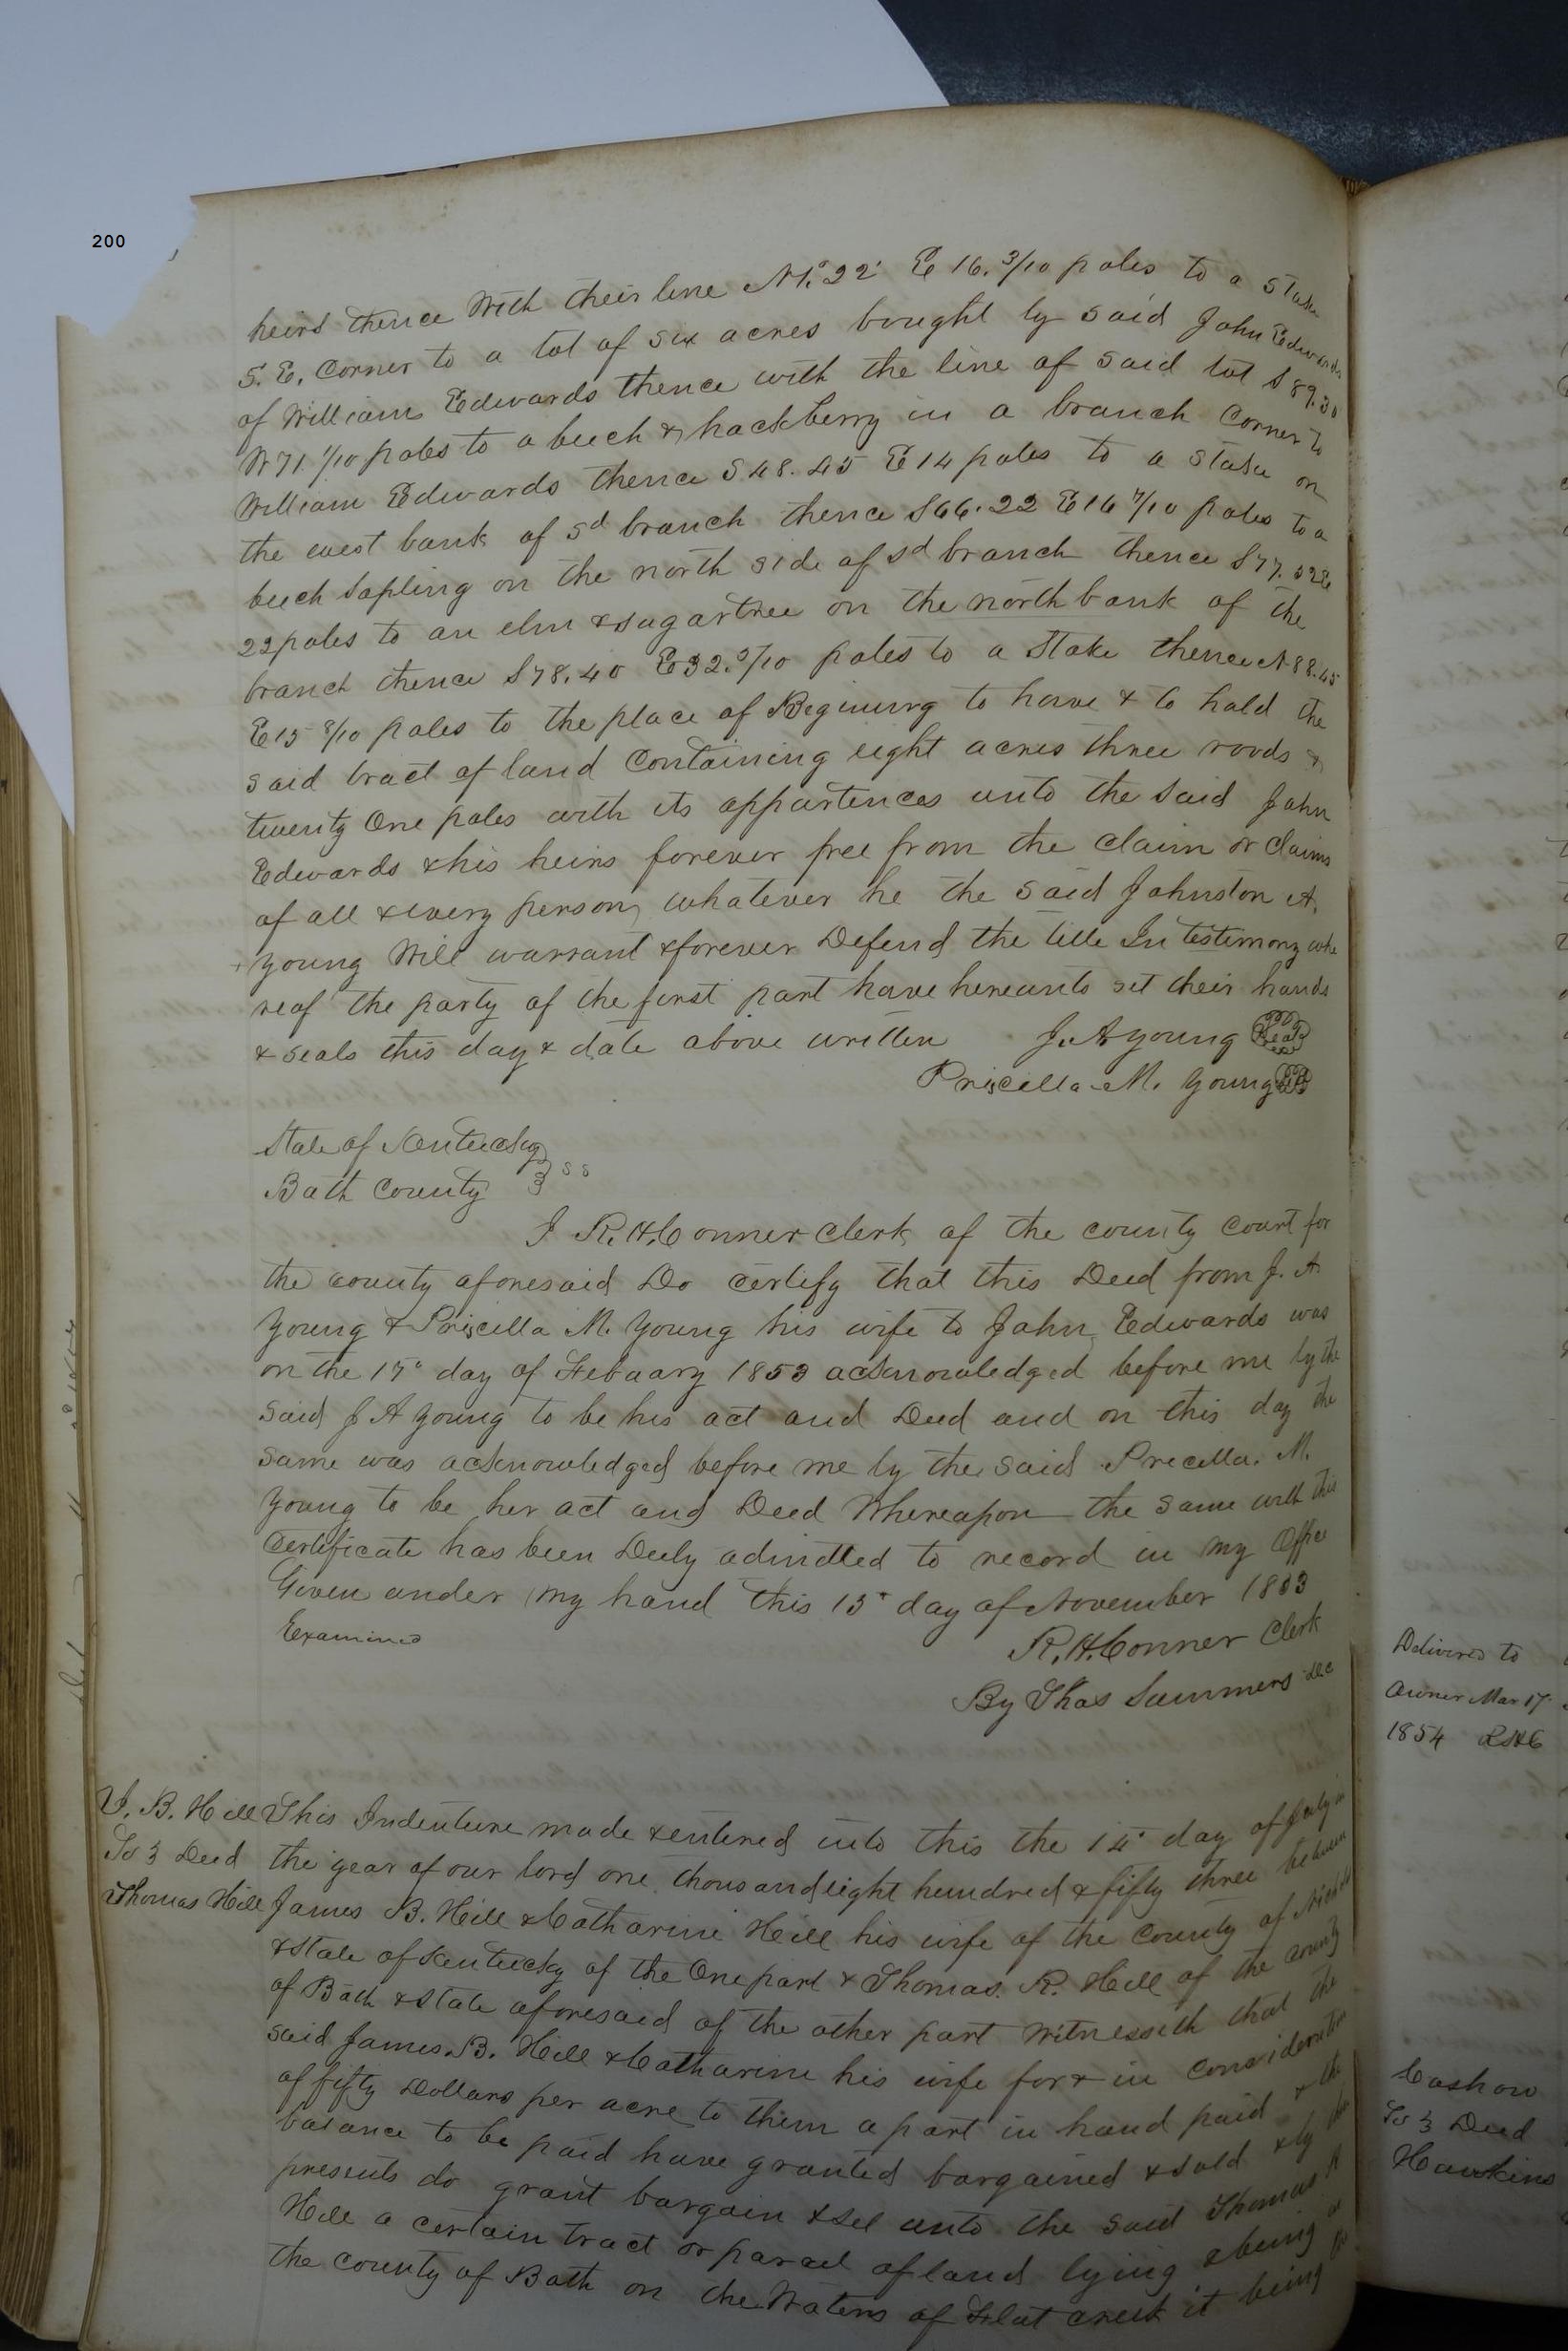 200
heirs thence With their line N1.°22' E 16. 3/10 poles to a Stake
S. E. Corner to a lot of six acres bought by said John Edwards
of William Edwards thence with the line of said lot S 89.30
W 71 1/10 poles to a beech & hackberry in a branch Corner to
William Edwards thence S 48. 45 E 14 poles to a Stake on
the west bank of sd branch thence S 66. 22 E 16 7/10 poles to a
beech Sapling on the north side of sd branch thence S 77. 52 E
22 poles to an elm & sugartree on the north bank of the
branch thence S 78. 40 E 32. 5/10 poles to a Stake thence N 88. 45
E 15 8/10 poles to the place of Begining to have & to hold the
said tract of land Containing eight acres three roods &
twenty One poles with its appartences unto the said John
Edwards & his heirs forever free from the claim or claims
of all & every person whatever he the said Johnston A.
Young Will warrant & forever Defend the title In testimony whe
reof the party of the first part have hereunto set their hands
& seals this day & date above written J. A Young Seal
Priscilla M. Young
State of Kentucky
Bath County } ss
I R. H. Conner clerk of the county court for
the county aforesaid Do certify that this Deed from J. A.
Young & Priscilla M. Young his wife to John Edwards was
on the 17° day of Febuary 1853 acknowledged before me by the
said J A Young to be his act and Deed and on this day the
same was acknowledged before me by the said Precilla. M.
Young to be her act and Deed Whereapon the same with this
Certificate has been Duly admitted to record in my Office
Given under my hand this 15 day of November 1853
Examined
R. H. Conner Clerk
By Thos Summers DC
J. B. Hill
To } Deed
Thomas Hill
This Indenture made & entered into this the 14 day of July in
the year of our lord one thousand eight hundred & fifty three between
James B. Hill & Catharine Hill his wife of the County of
& State of Kentucky of the One part & Thomas. R. Hill of the county
of Bath & State aforesaid of the other part Witnesseth that the
said James. B. Hill & Catharine his wife for & in consideration
of fifty Dollars per acre to them a part in hand paid & the
balance to be paid have granted bargained & sold & by
presents do grant bargain & sel unto the said Thomas R
Hill a certain tract or parcel of land lying & being
the county of Bath on the Waters of Flat creek it being
Delivered to
Owner Mar 17
1854 RHC
Cashow
To } Deed
Hawkins